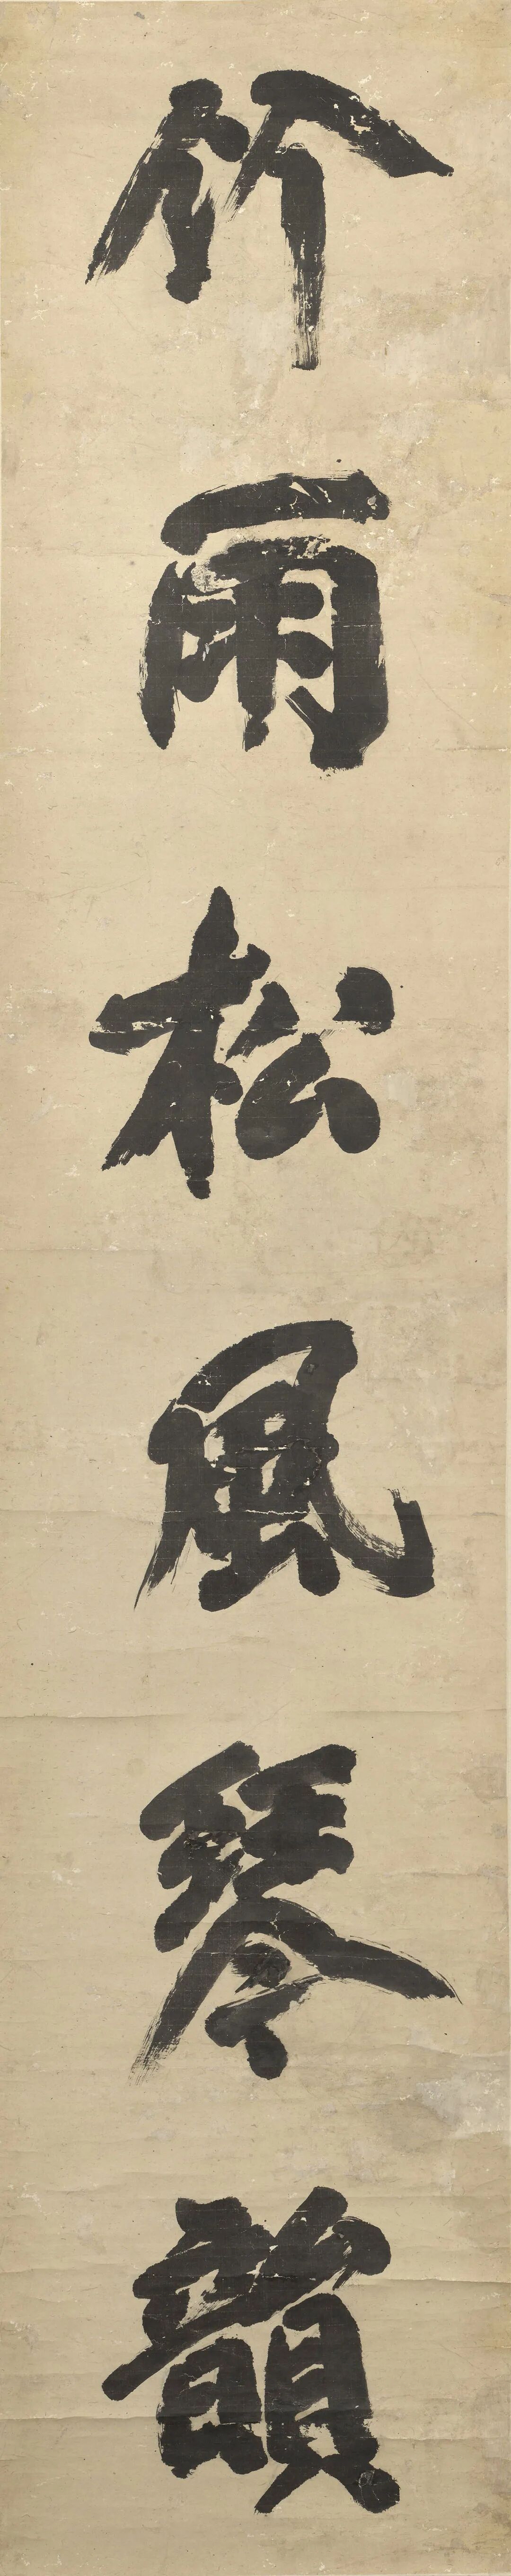 竹雨松風琴韻